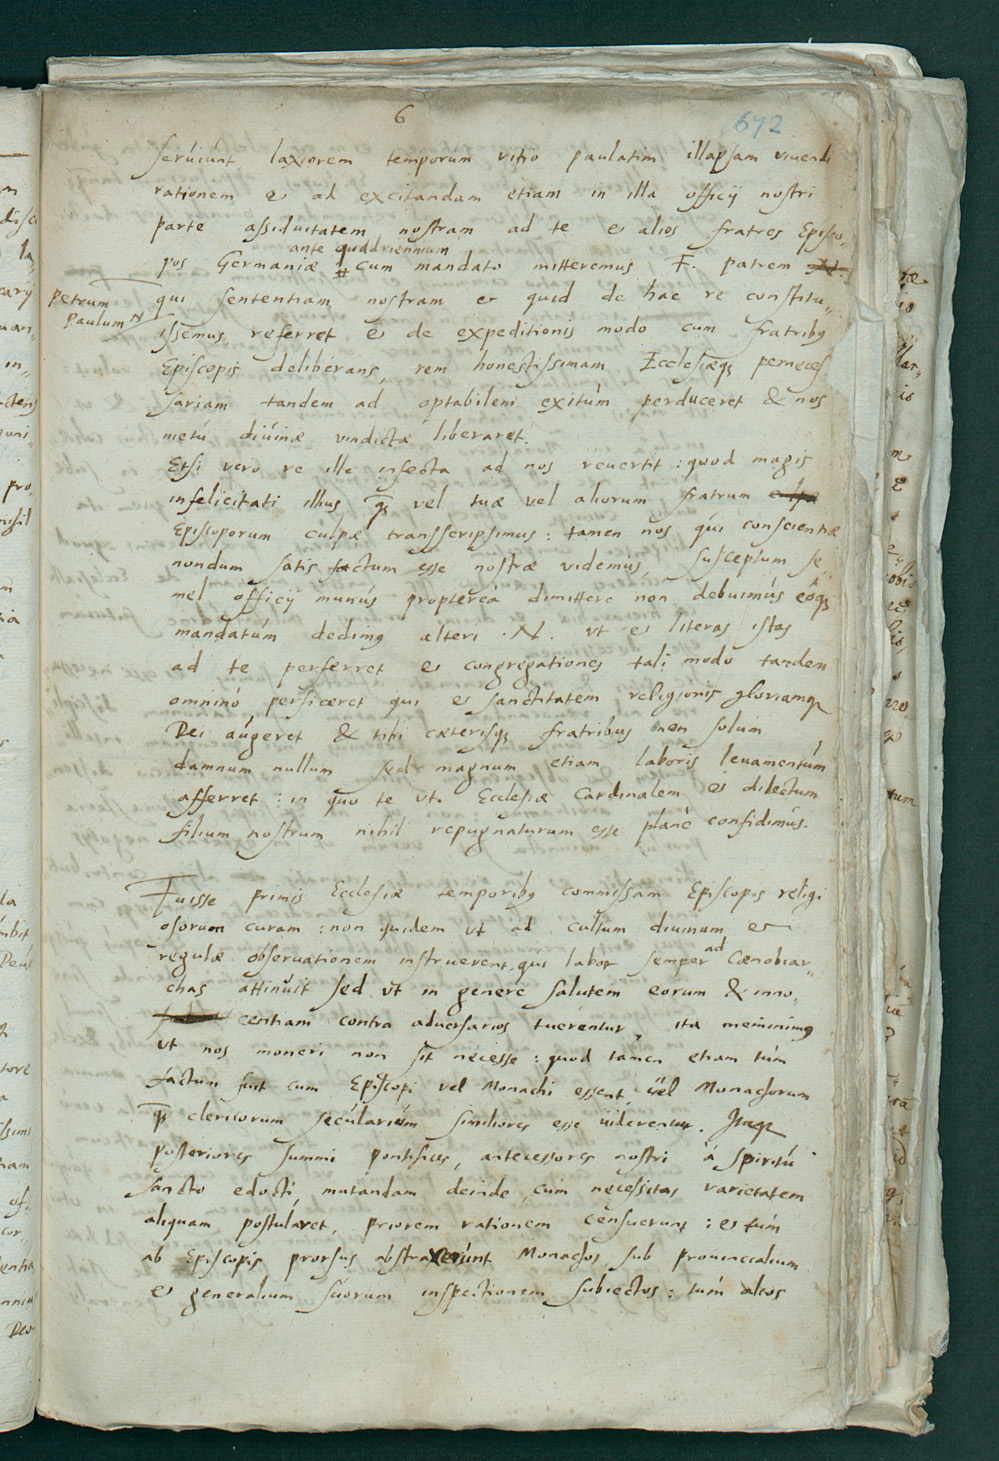 6
692
seruiunt laxiorem temporum vitio paulatim illapsam viuendi
rationem et ad excitandam etiam in illa officij nostri
parte assiduitatem nostram ad te et alios fratres Episco„
ante quadriennium
pos Germaniæ cum mandato mitteremus F. patrem N.
Petrum
Paulum N
qui sententiam nostram et quid de hac re constitu„
issemus, referret et de expeditionis modo cum fratribꝰ
Episcopis deliberans, rem honestissimam Ecclesiæqꝫ perneces
sariam tandem ad optabilem exitúm perduceret & nos
metú diúinæ vindictæ liberaret.
Etsi vero re ille infecta ad nos reuertit: quod magis
infelicitati illius qꝫ vel tuæ vel aliorum fratrum culpæ
Episcoporum culpæ transscripsimus: tamen nos qúi conscientiæ
nondum satis factum esse nostræ videmus, susceptum se„
mel officij munús proptereà dimittere non debuimús eóqꝫ
mandatúm dedimꝰ alteri .N. vt et literas istas
ad te perferret et congregationes tali modo tandem
omninò perficeret qui et sanctitatem religionis gloriamqꝫ
Dei aúgeret & tibi cæterisqꝫ fratribus non solum
damnum nullum sed magnum etiam laboris leuamentúm
afferret: in quo te vt. Ecclesiæ Cardinalem et dilectum
filium nostrum nihil repugnaturum esse planè confidimús.
Fuisse primis Ecclesiæ temporibꝰ commissam Episcopis religi
osorum curam: non quidem vt ad cultum diuinum et
regulæ obseruationem instruerent, qui labor semper ad Cœnobiar„
chas attinuit sed vt in genere salutem eorum & inno„
centiam contra aduersarios tuerentur, ita meminimꝰ
vt nos moneri non sit necesse: quod tamen etiam túm
factum fuit cum Episcopi vel Monachi essent, uel Monachorum
qꝫ clericorum secúlariúm similiores esse uiderentur. Itaqꝫ
posteriores summi pontifices, antecessores nostri à spiritú
sancto edocti, mutandam deinde, cúm necessitas varietatem
aliquam postularet, priorem rationem censuerunt: et túm
ab Episcopis prorsus abstraxerúnt Monachos sub prouincialium
et generalium suorum inspectionem subiectos: túm alios